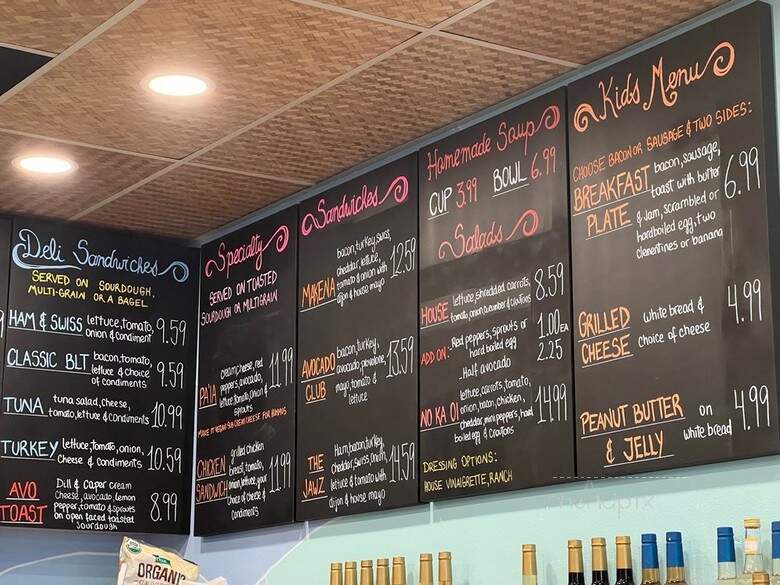 Deli Sandwiches
SERVED ON SOURDOUGH,
MULTI-GRAIN OR A BAGEL
HAM & SWISS lettuce, tomato, onion & condiment 9.59
CLASSIC BLT bacon, tomato, lettuce & choice of condiments 9.59
TUNA tuna salad, cheese, tomato, lettuce & condiments 10.99
TURKEY lettuce, tomato, onion, cheese & condiments 10.59
AVO TOAST Dill & Caper cream cheese, avocado, lemon pepper, tomato & sprouts on open faced toasted sourdough 8.99
Specialty
SERVED ON TOASTED
SOURDOUGH OR MULTIGRAIN
PA'IA creamcheese, red peppers, avocado, lettuce, tomato, onion & sprouts 11.99
MAKE IT VEGAN-SUB CREAM CHEESE FOR HUMMUS
CHICKEN SANDWICH grilled chicken breast, tomato, onion, lettuce, your choice of cheese & condiments 11.99
Sandwiches
MAKENA bacon, turkey, swiss, cheddar, lettuce, tomato & onion with dijon & house mayo 12.59
AVOCADO CLUB bacon, turkey, avocado, provolone, mayo, tomato & lettuce 13.59
THE JAWZ Ham, bacon, turkey, cheddar, swiss, onion, lettuce & tomato with dijon & house mayo 14.59
Homemade Soup
CUP 3.99 BOWL 6.99
Salads
HOUSE lettuce, shredded carrots, tomato, onion, cucumber & croutons 8.59
ADD ON: Red peppers, sprouts or hard boiled egg 1.00 EA
-Half avocado 2.25
NO KA OI lettuce, carrots, tomato, onion, bacon, chicken, cheddar, mini peppers, hard boiled egg & croutons 14.99
DRESSING OPTIONS:
HOUSE VINAIGRETTE, RANCH
Kids Menu
CHOOSE BACON OR SAUSAGE & TWO SIDES:
BREAKFAST PLATE bacon, sausage, toast with butter & jam, scrambled or hardboiled egg, two clementines or banana 6.99
GRILLED CHEESE white bread & choice of cheese 4.99
PEANUT BUTTER & JELLY on white bread 4.99
ORGANIC